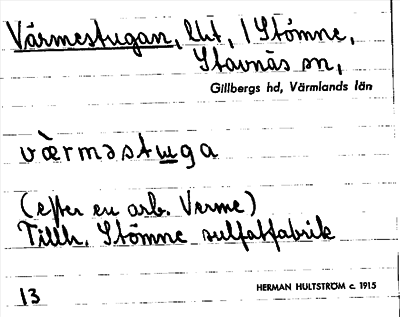 Värmestugan, lht, 1 Stömne,
Stavnäs sn,
Gillbergs hd, Värmlands län
væ̀rməstuga
(efter en arb. Verme)
Tillh. Stömne sulfatfabrik
13
HERMAN HULTSTRÖM c. 1915